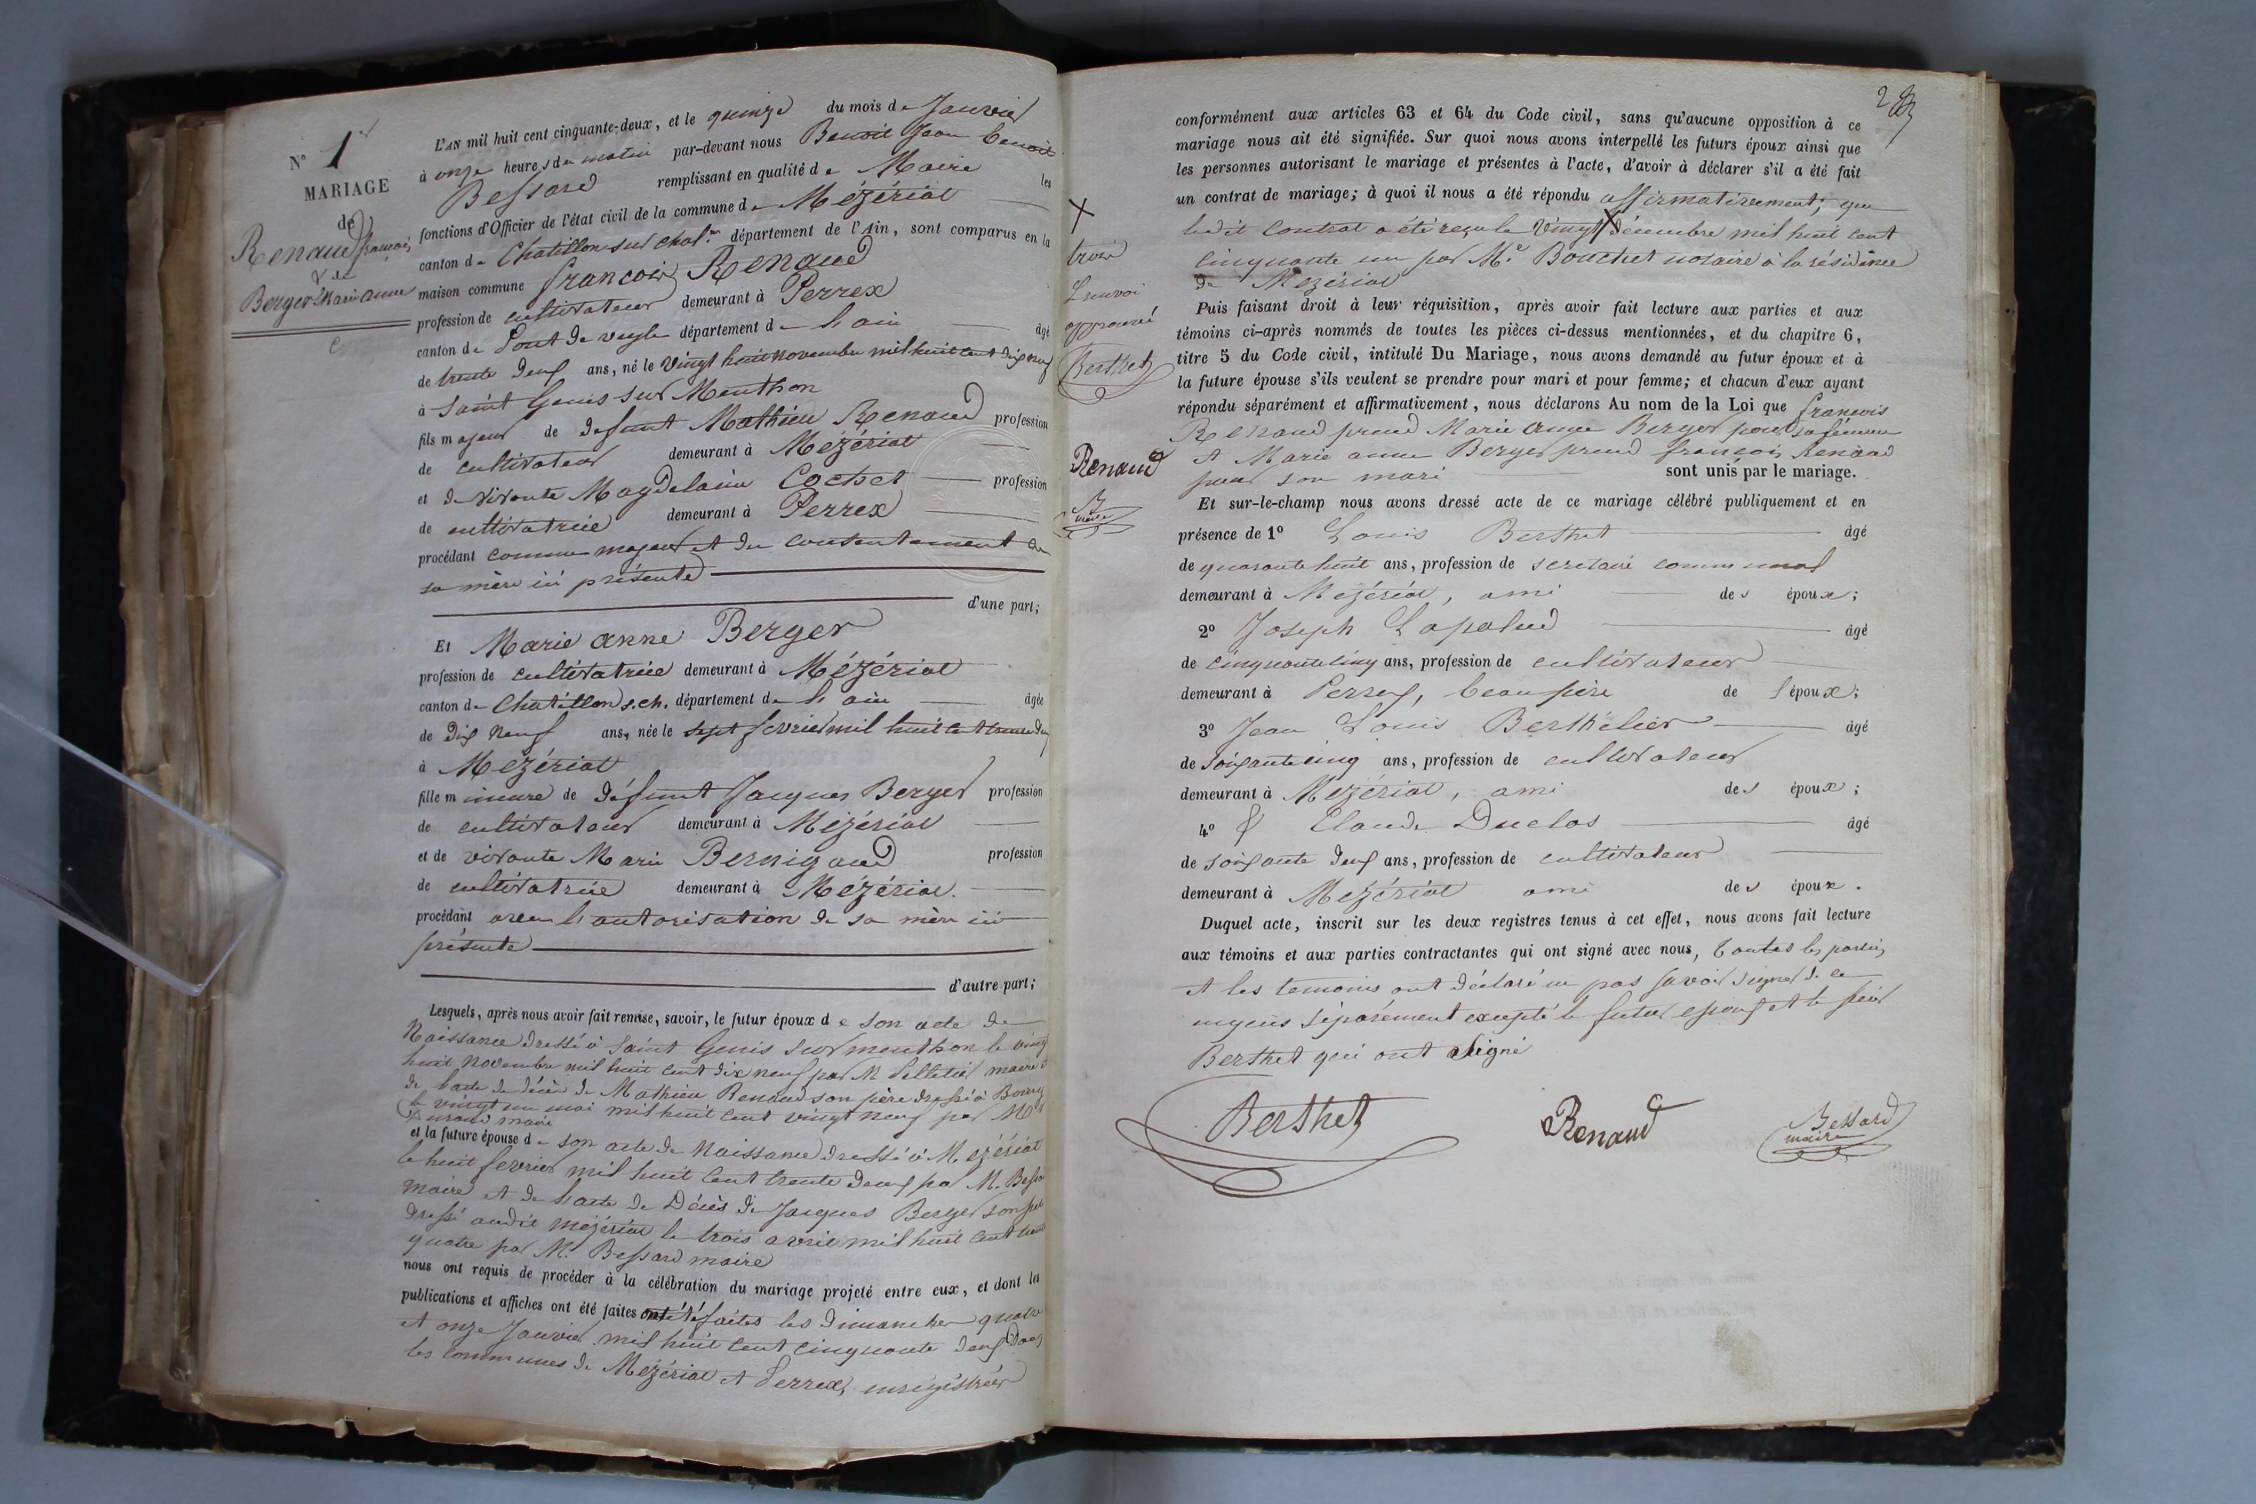 N° 1
MARIAGE
de
Renaud françois
&
Berger Marie anne
L'AN mil huit cent cinquante-deux, et le quinze du mois de Janvier
à onze heures du matin par-devant nous Benoit Jean Benoit
Bessard remplissant en qualité de Maire les
fonctions d'Officier de l'état civil de la commune de Mézériat
canton de Chatillon sur chal.ne département de l'Ain, sont comparus en la
maison commune françois Renaud
profession de cultivateur demeurant à Perrex
canton de Pont de veyle département de l'ain âgé
de trente deux ans, né le vingt huit novembre mil huit cent dix neuf
à Saint Genis sur Menthon
fils majeur de defunt Mathieu Renaud profession
de cultivateur demeurant à Mézériat
et de vivante Magdelaine Cochet profession
de cultivatrice demeurant à Perrex
procédant comme majeur et du consentement de
sa mère ici présente
d'une part;
Et Marie anne Berger
profession de cultivatrice demeurant à Mézériat
canton de Chatillon s. ch. département de l'ain âgée
de dix neuf ans, née le sept fevrier mil huit cent trente deux
à Mézériat
fille mineure de défunt Jacques Berger profession
de cultivateur demeurant à Mézériat
et de vivante Marie Bernigaud profession
de cultivatrice demeurant à Mézériat.
procédant avec l'autorisation de sa mère ici
présente
d'autre part;
Lesquels, après nous avoir fait remise, savoir, le futur époux de son acte de
Naissance dressé à Saint Genis sur menthon le vingt
huit novembre mil huit cent dix neuf par M Pelletier maire et
de l'acte de décès de Mathieu Renaud son père dressé à Bourg
le vingt un mai mil huit cent vingt neuf par Mr
maire
et la future épouse de son acte de Naissance dressé à Mézériat
le huit fevrier mil huit cent trente deux par M. Bessard
maire et de l'acte de Décès de Jacques Berger son père
dressé audit mézériat le trois avril mil huit cent trente
quatre par M. Bessard maire
nous ont requis de procéder à la célébration du mariage projeté entre eux, et dont les
publications et affiches ont été faites ont été faites les dimanches quatre
et onze Janvier mil huit cent cinquante deux dans
les communes de Mézériat et Perrex, enregistrées
2
conformément aux articles 63 et 64 du Code civil, sans qu'aucune opposition à ce
mariage nous ait été signifiée. Sur quoi nous avons interpellé les futurs époux ainsi que
les personnes autorisant le mariage et présentes à l'acte, d'avoir à déclarer s'il a été fait
un contrat de mariage; à quoi il nous a été répondu affirmativement; que
ledit contrat a été reçu le vingt X décembre mil huit cent
cinquante un par Me. Bouchet notaire à la résidence
de Mézériat
X
trois
renvoi
approuvé
Berthet
Renaud
B
maire
Puis faisant droit à leur réquisition, après avoir fait lecture aux parties et aux
témoins ci-après nommés de toutes les pièces ci-dessus mentionnées, et du chapitre 6,
titre 5 du Code civil, intitulé Du Mariage, nous avons demandé au futur époux et à
la future épouse s'ils veulent se prendre pour mari et pour femme; et chacun d'eux ayant
répondu séparément et affirmativement, nous déclarons Au nom de la Loi que françois
Renaud prend Marie anne Berger pour sa femme
et Marie anne Berger prend françois Renaud
pour son mari sont unis par le mariage.
Et sur-le-champ nous avons dressé acte de ce mariage célébré publiquement et en
présence de 1° Louis Berthet âgé
de quarante huit ans, profession de secretaire communal
demeurant à Mézériat, ami des époux;
2° Joseph Lapalud âgé
de cinquante cinq ans, profession de cultivateur
demeurant à Perrex, beau père de l'époux;
3° Jean Louis Berthelier âgé
de soixante cinq ans, profession de cultivateur
demeurant à Mézériat, ami des époux;
4° Claude Duclos âgé
de soixante deux ans, profession de cultivateur
demeurant à Mézériat ami des époux.
Duquel acte, inscrit sur les deux registres tenus à cet effet, nous avons fait lecture
aux témoins et aux parties contractantes qui ont signé avec nous, toutes les parties
et les temoins ont déclaré ne pas savoir signer de ce
enquis séparément excepté le futur epoux et le sieur
Berthet qui ont signé
Berthet Renaud Bessard
maire